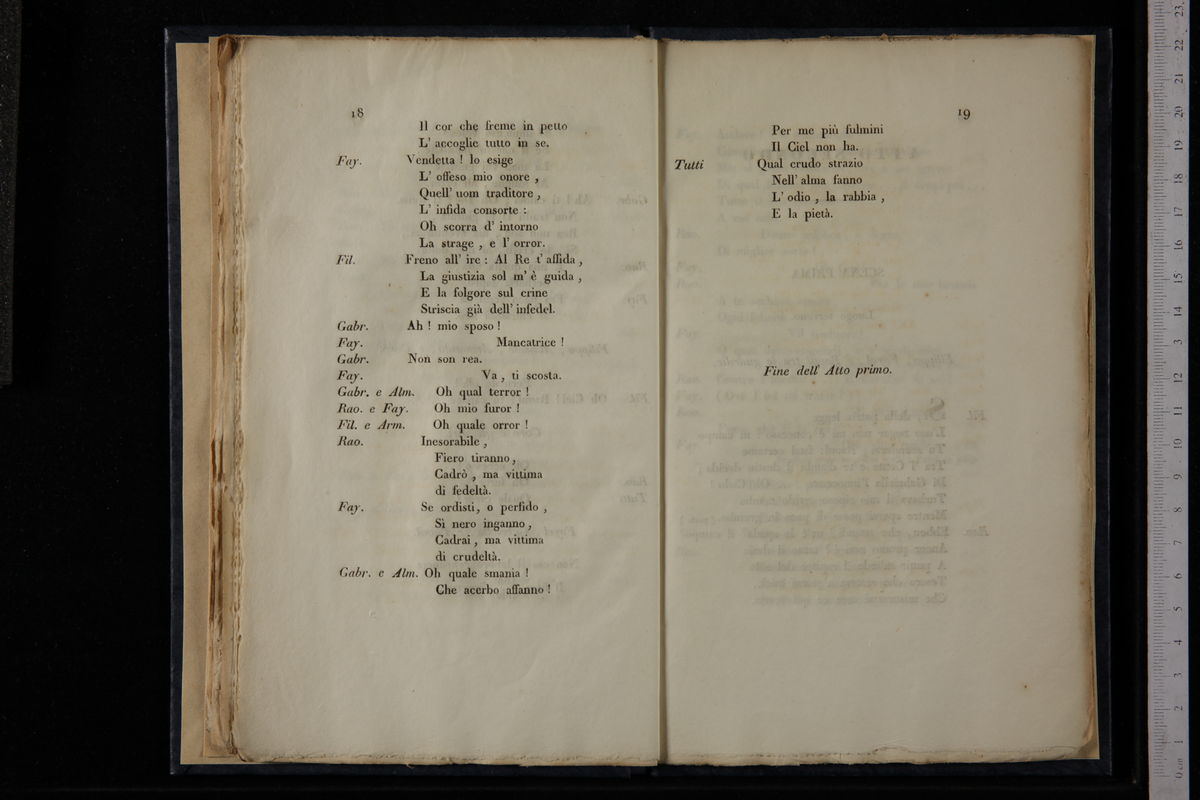 18
Il cor che freme in petto
L' accoglie tutto in se.
Fay. Vendetta ! lo esige
L' offeso mio onore ,
Quell' uom traditore ,
L' infida consorte :
Oh scorra d' intorno
La strage , e l' orror.
Fil. Freno all' ire : Al Re t' affida ,
La giustizia sol m' è guida ,
E la folgore sul crine
Striscia già dell' infedel.
Gabr. Ah ! mio sposo !
Fay. Mancatrice !
Gabr. Non son rea.
Fay. Va , ti scosta.
Gabr. e Alm. Oh qual terror !
Rao. e Fay. Oh mio furor !
Fil. e Arm. Oh quale orror !
Rao. Inesorabile ,
Fiero tiranno ,
Cadrò , ma vittima
di fedeltà.
Fay. Se ordisti, o perfido ,
Sì nero inganno ,
Cadrai , ma vittima
di crudeltà.
Gabr. e Alm. Oh quale smania !
Che acerbo affanno !
19
Per me più fulmini
Il Ciel non ha.
Tutti Qual crudo strazio
Nell' alma fanno
L' odio , la rabbia ,
E la pietà.
Fine dell' Atto primo.
0 cm 1 2 3 4 5 6 7 8 9 10 11 12 13 14 15 16 17 18 19 20 21 22 23